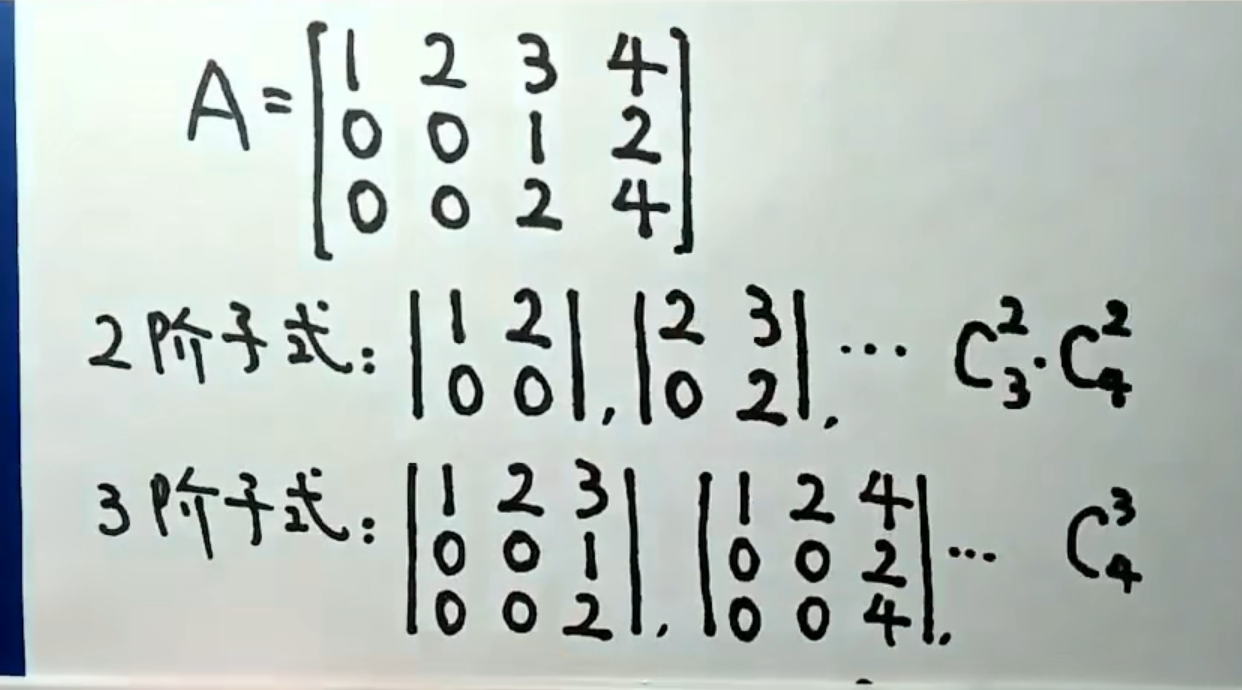 A = [1 2 3 4
0 0 1 2
0 0 2 4]
2阶子式: |1 2
0 0|, |2 3
0 2|, … C₃²·C₄²
3阶子式: |1 2 3
0 0 1
0 0 2|, |1 2 4
0 0 2
0 0 4|, … C₄³